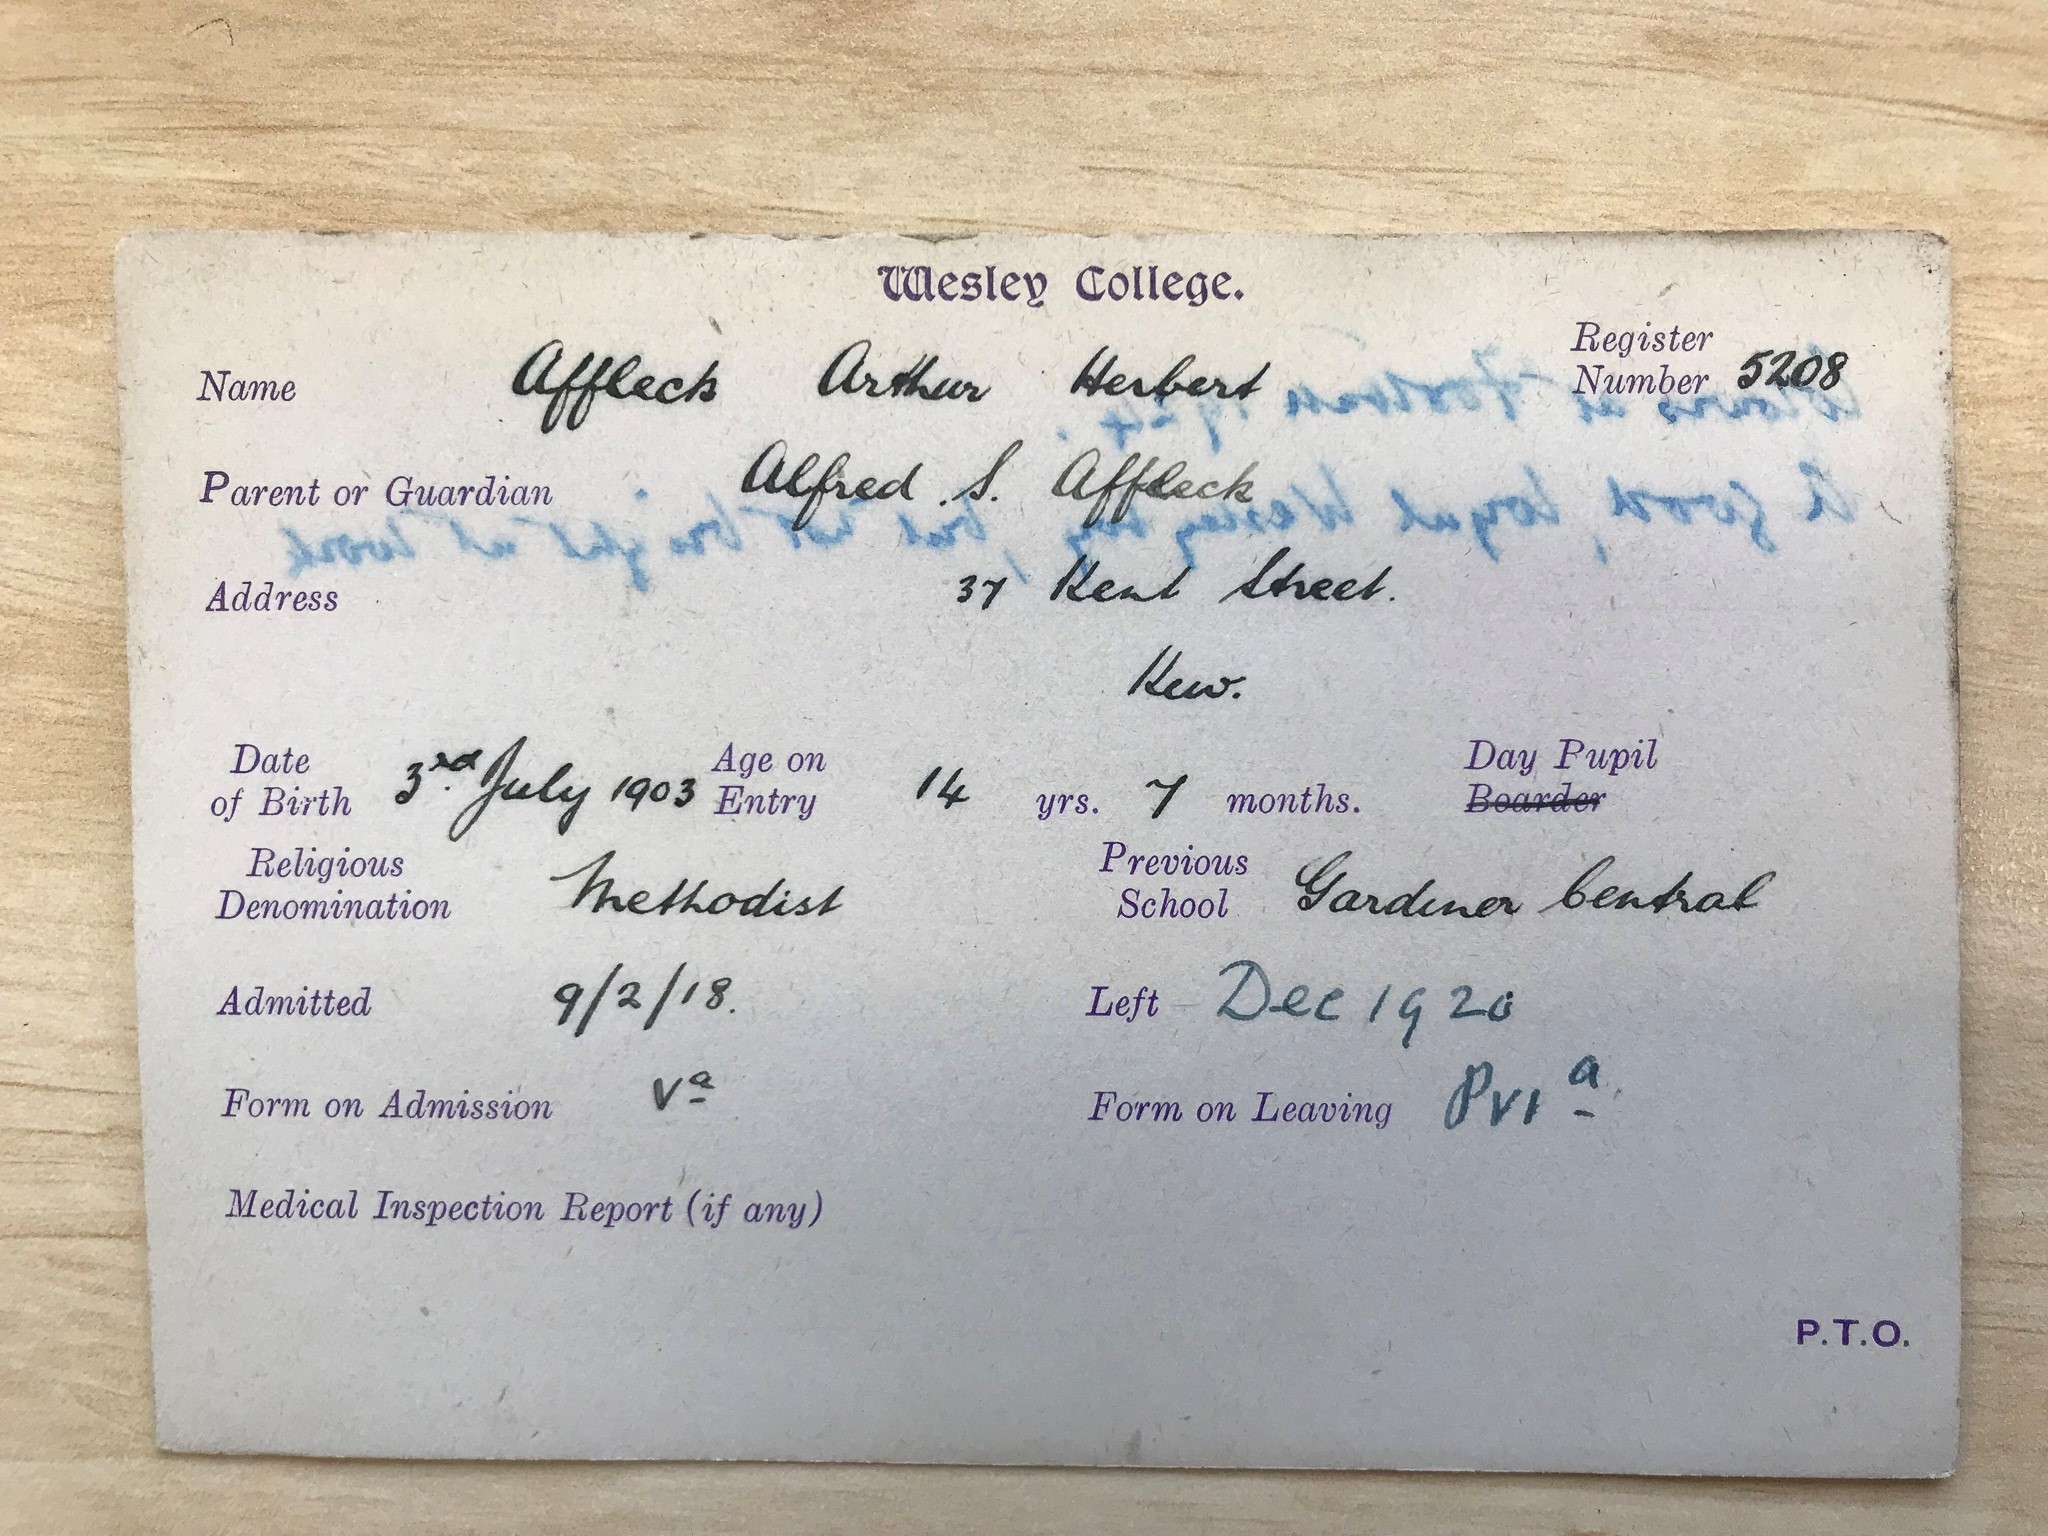 Wesley College.
Name Affleck Arthur Herbert Register Number 5208
Parent or Guardian Alfred S. Affleck
A good, loyal Wesley boy, but not bright at work
Address 37 Kent Street.
Kew.
Date of Birth 3rd. July 1903 Age on Entry 14 yrs. 7 months. Day Pupil Boarder
Religious Denomination Methodist Previous School Gardiner Central
Admitted 9/2/18. Left Dec 1920
Form on Admission Va Form on Leaving PVIa
Medical Inspection Report (if any)
P.T.O.